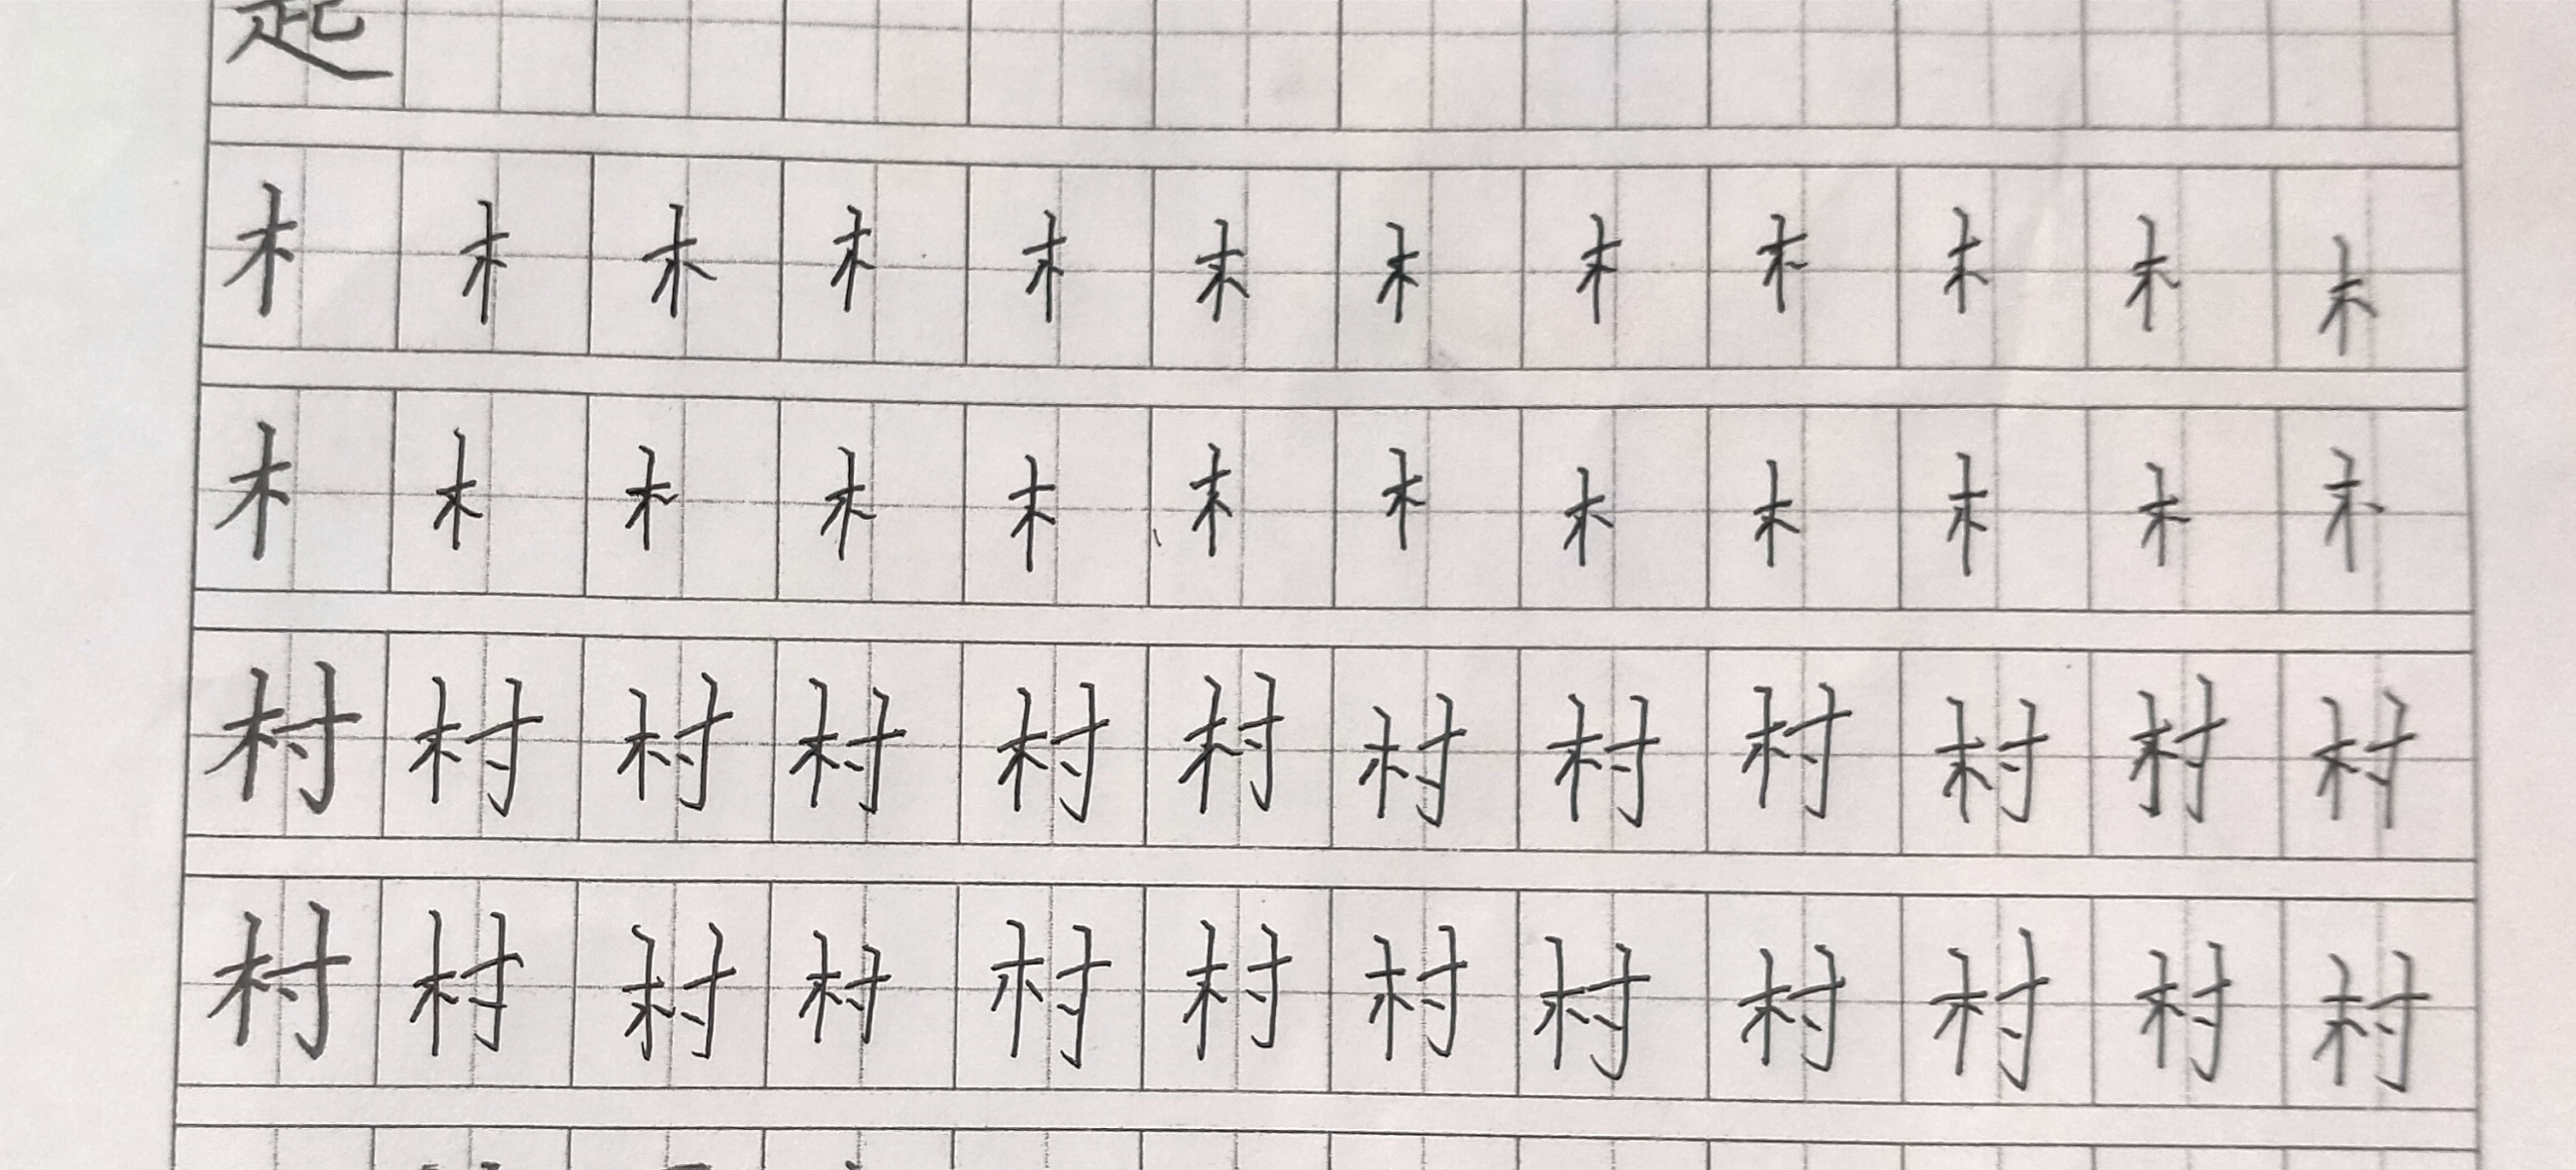 起
木木木木木木木木木木木木
木木木木木木木木木木木木
村村村村村村村村村村村村
村村村村村村村村村村村村